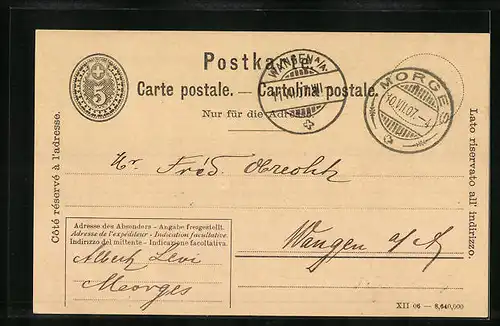 Postkarte.
Carte postale. — Cartolina postale.
Nur für die Adresse.
5
WANGEN a/A.
MORGES
10.VII.07.
Côté réservé à l'adresse.
Lato riservato all' indirizzo.
Hr. Fréd. Obrecht
Wangen a/A
Adresse des Absenders - Angabe freigestellt.
Adresse de l'expéditeur - Indication facultative.
Indirizzo del mittente - Indicazione facoltativa.
Albert Levi
Morges
XII 06 — 8,640,000